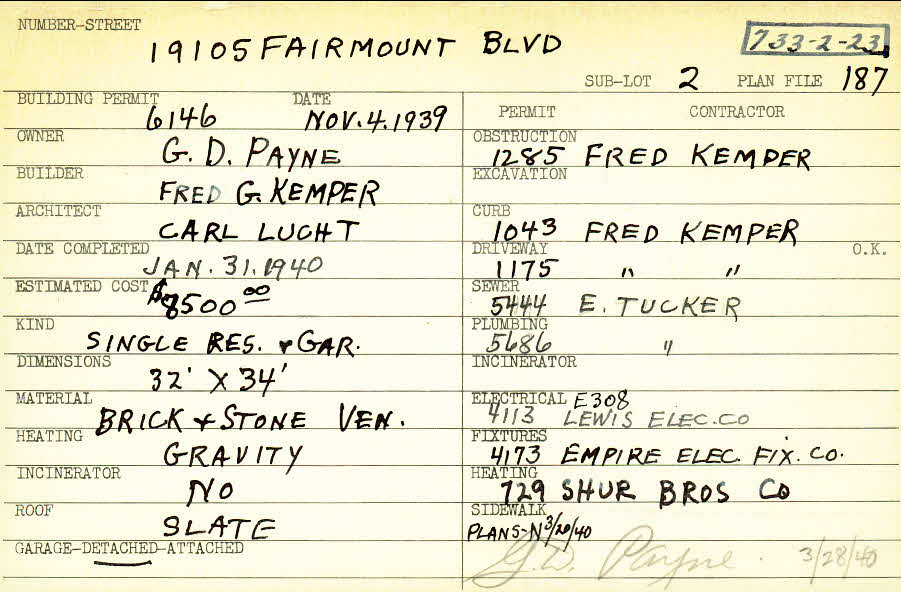 NUMBER-STREET
19105 FAIRMOUNT BLVD
733-2-23
SUB-LOT 2 PLAN FILE 187
BUILDING PERMIT 6146 DATE NOV. 4. 1939
OWNER G. D. PAYNE
BUILDER FRED G. KEMPER
ARCHITECT CARL LUCHT
DATE COMPLETED JAN. 31. 1940
ESTIMATED COST $8500 00
KIND SINGLE RES. & GAR.
DIMENSIONS 32' X 34'
MATERIAL BRICK & STONE VEN.
HEATING GRAVITY
INCINERATOR NO
ROOF SLATE
GARAGE-DETACHED-ATTACHED
PERMIT CONTRACTOR
OBSTRUCTION 1285 FRED KEMPER
EXCAVATION
CURB 1043 FRED KEMPER
DRIVEWAY 1175 " " O.K.
SEWER 5444 E. TUCKER
PLUMBING 5686 "
INCINERATOR
ELECTRICAL E308
4113 LEWIS ELEC. CO
FIXTURES 4173 EMPIRE ELEC. FIX. CO.
HEATING 729 SHUR BROS CO
SIDEWALK
PLANS-N 3/20/40
G. D. Payne. 3/28/40